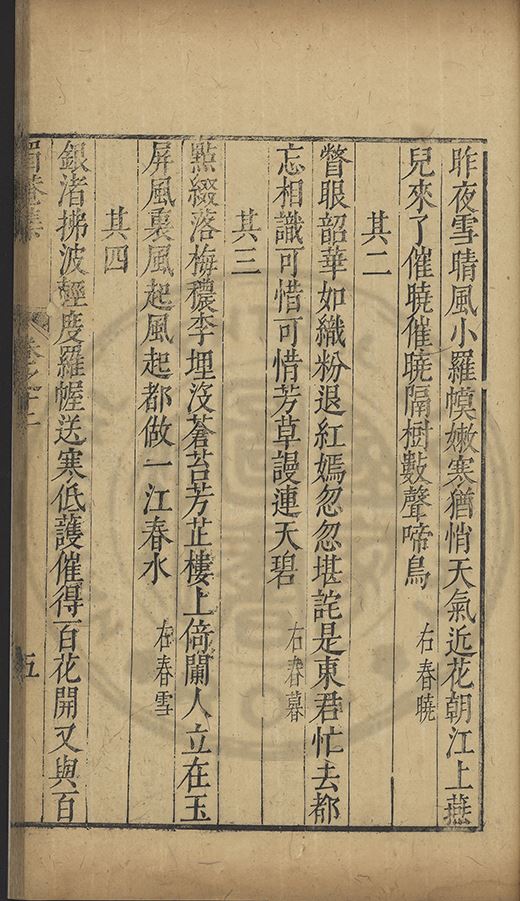 昨夜雪晴風小羅幙嫩寒猶悄天氣近花朝江上燕
兒來了催曉催曉隔樹數聲啼鳥 右春曉
其二
瞥眼韶華如織粉退紅嫣忽忽堪詫是東君忙去都
忘相識可惜可惜芳草謾連天碧 右春暮
其三
點綴落梅穠李埋沒蒼苔芳芷樓上倚闌人立在玉
屏風裏風起風起都做一江春水 右春雪
其四
銀渚拂波輕度羅幄送寒低護催得百花開又與百
卷之十二 五